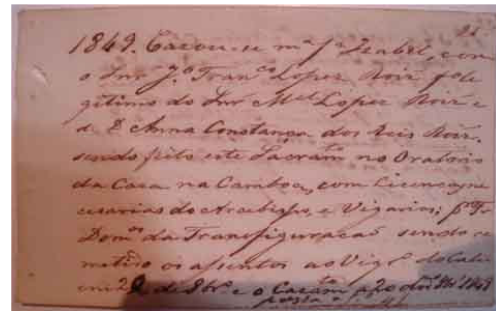 1849. Cazou-se mª fª Izabel, com
o Snr. Jº Franco Lopez Roiz fº le
gitimo do Snr Mel Lopez Roiz e
de D. Anna Constança dos Reis Roiz.
sendo feito este Sacramto no Oratorio
da Caza na com Licenças ne
cesarias do Arcebispo, e Vigarios; pr Fr.
Domos da Transfiguração sendo re
metido os assentos ao Vigro do
em 22 de 8bro e o Cazamto a 20 do 1849